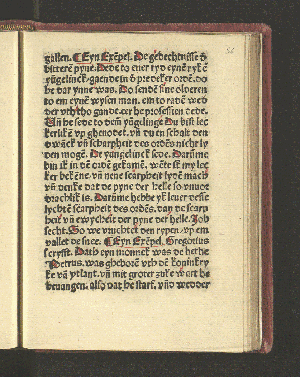 gallen. ¶ Eyn Exēpel. De gedechtnisse d̕
bitterē pyne. Dede to ener tyd eynē rykē
yūgelinck, gaen de in d̕ prediker ordē. do
he dar ynne was. Do senden sine olderen
to em eynē wysen man. em to raden wed
der vththo gan de. er he profession dede.
Vñ he sede to dem yūgelinge Du bist lec
kerlikē vp ghenodet. vñ du en schalt den
vñ scharpheit des ordēs nicht ly
den moge. De yungelinck sede. Darūme
bin ik in dē ordē gekamē. wēte ik my lec
ker bekēne. vñ nene scharpheit lydē mach
vñ dencke dat de pyne der helle so
is. Darūme hebbe yk leuer desse
lychten scharpheit des ordēs. den de scarp
heit vñ ewycheit der pyne der helle. Job
secht. So we vruchtet den rypen. vp em
vallet de snee. ¶ Eyn Exēpel. Gregorius
scryft. Dath eyn monnick was de hethe
Petrus. was ghebarē vth dē koninkry
ke vñ ytlant. vñ mit groter zuke wart he
beuangen. also dat he starf. vñd wedder